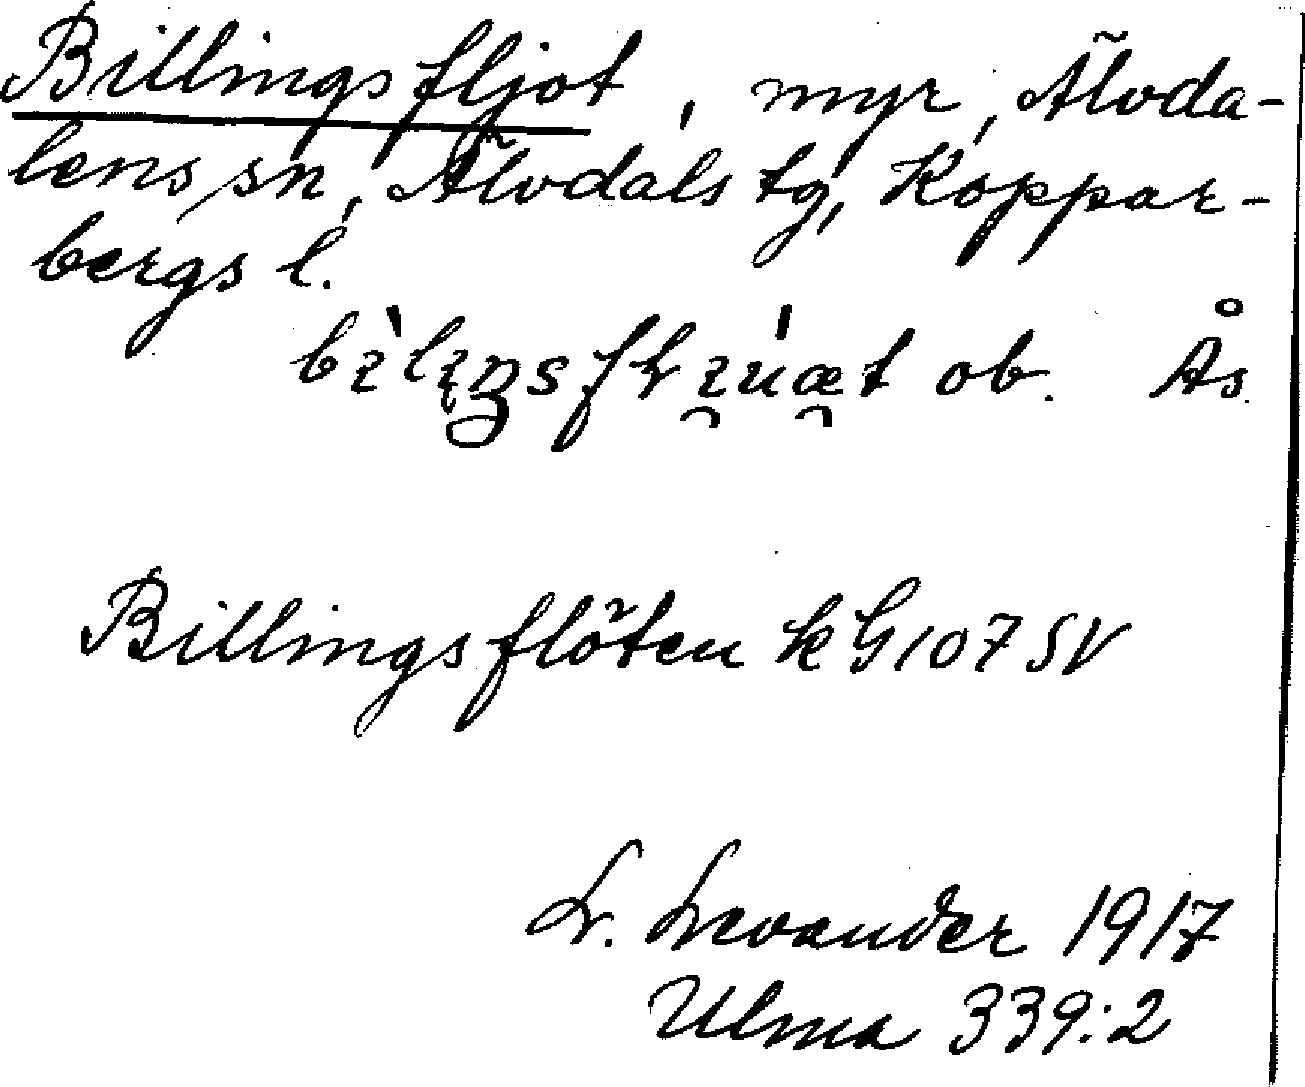 Billingsfljot, myr, Älvda-
lens sn, Älvdals tg, Koppar-
bergs l.
ob. Ås.
Billingsflöten kG107SV
L. Levander 1917
Ulma 339:2